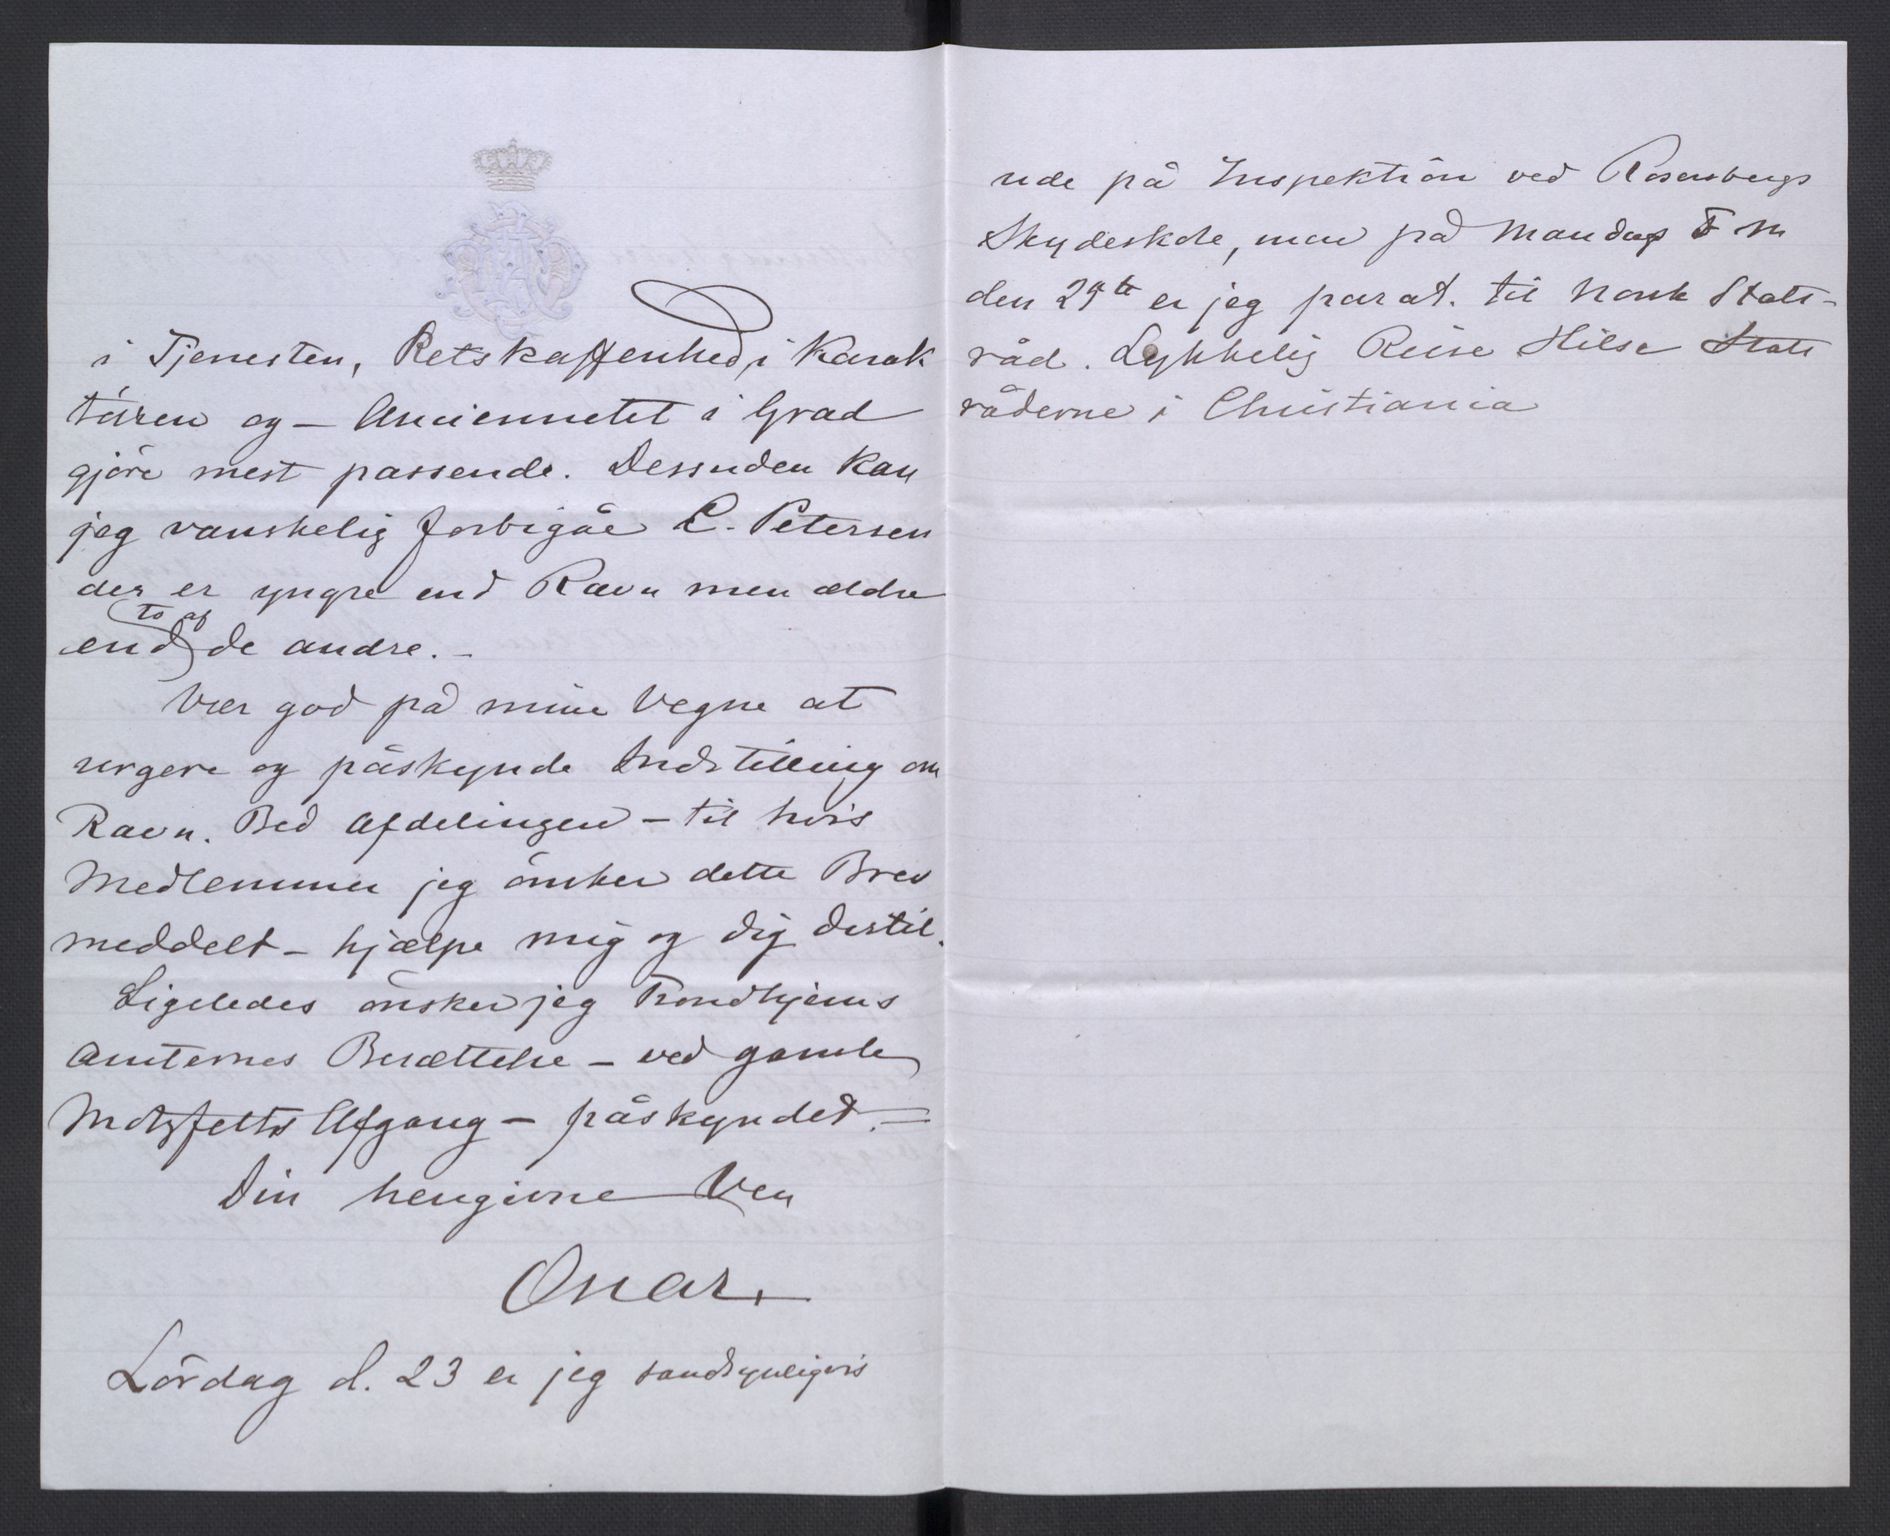 i Tjenesten, Retskaffenhed i Karak
tären og – Anciennetet i Grad
gjöre mest passende. Dessuden kan
jeg vanskelig forbigåe C. Petersen
der er yngre end Ravn men ældre
end to af de andre. –
Vær god på mine Vegne at
urgere og påskynde Indstilling om
Ravn. Bed Afdelingen – til hvis
Medlemmer jeg önsker dette Brev
meddelt – hjælpe mig og dig dertil.
Ligeledes önsker jeg Trondhjems
Amternes Besættelse – ved gamle
Motzfelts Afgang – påskyndet. –
Din hengivne Ven
Oscar.
Lördag d. 23 er jeg sandsynligvis
ude på Inspektion ved Rosersbergs
Skydeskole, men på Mandag F M
den 29te er jeg parat. til Norsk Stats-
råd. Lykkelig Reise Hilse Stats
råderne i Christiania